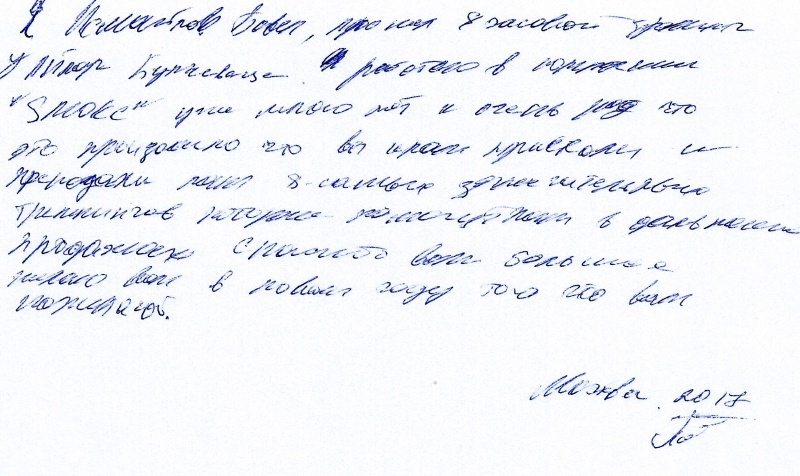 Я Павел, прошел 8 часовой тренинг
У Буткевича. Я работаю в компании
"SMOKE" уже много лет и очень рад что
это произошло что вы к нам приехали и
преподали нам 8-самых замечательных
тренингов которые помогут нам в дальнейших
продажах спасибо вам большое
желаю вам в новом году того что вам
Москва. 2017